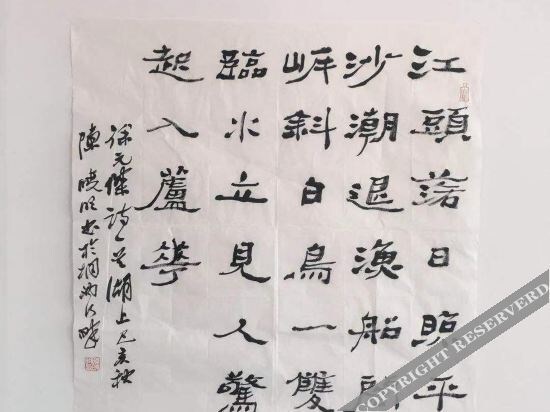 江頭落日照平
沙潮退漁船
岸斜白鳥一雙
臨水立見人驚
起入蘆華
徐元傑詩一首湖上己亥秋
陳曉書於桐汭河畔
COPYRIGHT RESERVERD